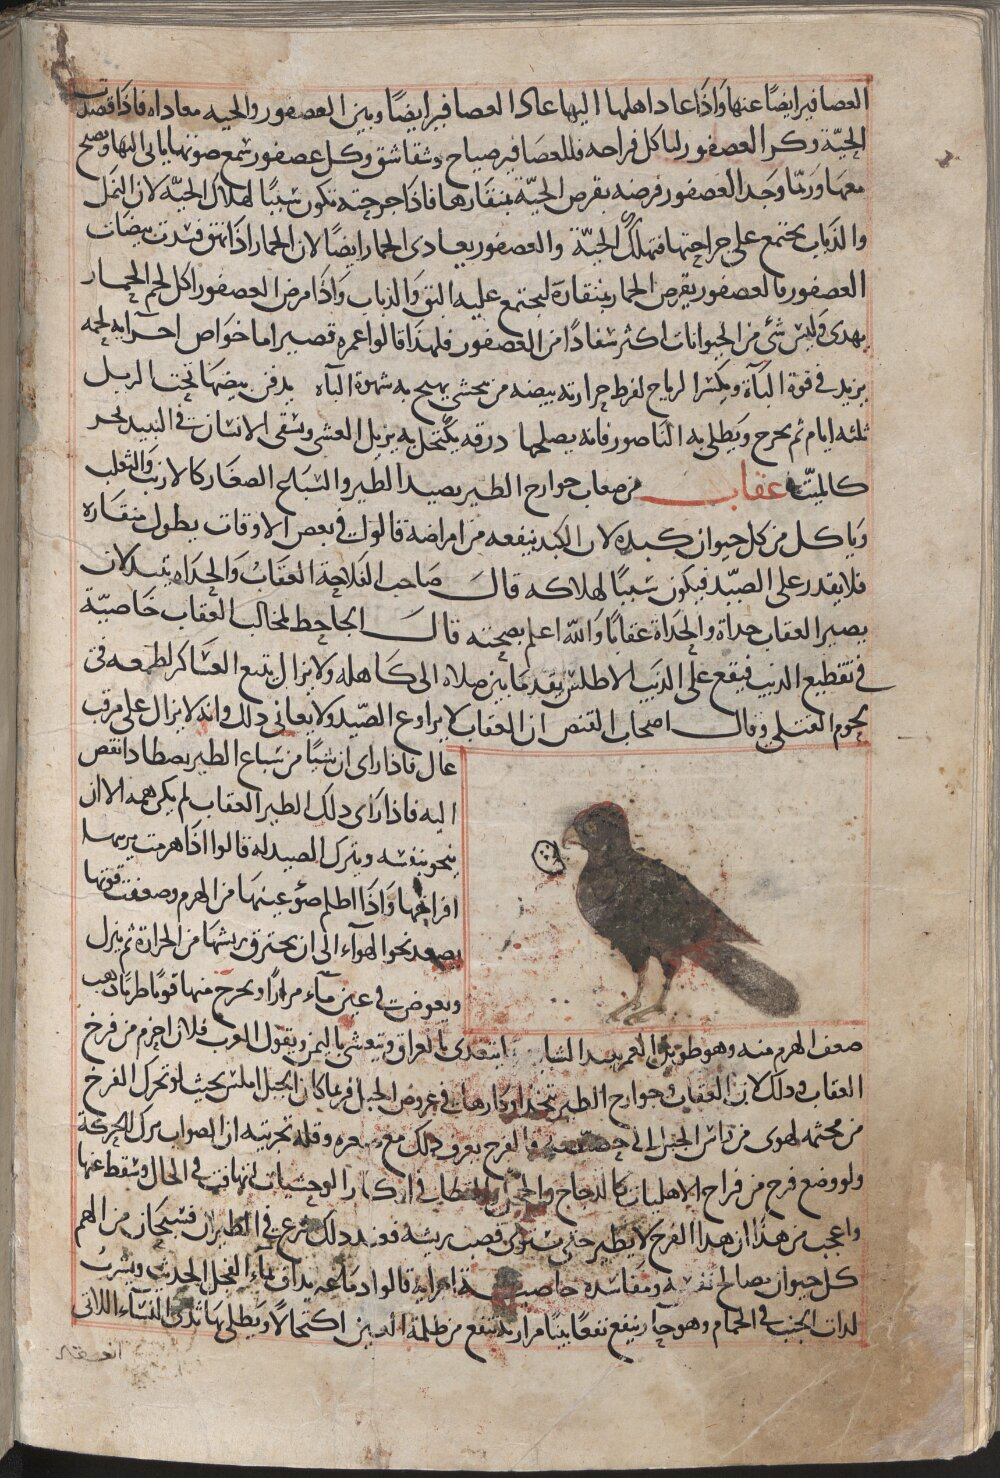 العصافير ايضًا عنها وَاذَا عاد اهلها اليها عاد العصافير ايضًا وبين العصفور والحيه معاداه فاذا قصدت
الحيّة وكر العصفور لتاكل فراخه فللعصَافير صياح وشقاشق وكل عصفور سمع صوتها ياتى اليها ويصيح
معها وربّما وجد العصفور فرصه يقرص الحيّة بمنقارها فاذَا جرحته تكون سَببًا لهلاك الحيّة لان النمل
والذباب يجتمع على جراحتها فتهلك الحيّة والعصفور يعادى الحمار ايضًا لان الحمار اذَا نهق فسدت بيضَات
العصفور فالعصفور يقرص الحمار بمنقاره ليجتمع عليه البق وَالذباب وَاذَا مرض العصفور اكل لحم الحمار
يهدى وَليسَ شئ من الحيوانات اكثر سفادًا من العصفور فلهذَا قالوا عمره قصير اما خواص اجزايه لحمه
يزيد فى قوة البآة ويكسر الرياح لفرط حرارته بيضه من يحشى يهيج به شهوة البآه يدفن بيضهَا تحت الزبل
ثلثه ايام ثم يخرج ويطلى به النَاصور فانه يصلحها ذرقه يكتحل به يزيل العشى وتسقى الانسان فى النبيد يخر
كالميّت عقاب من صعاب جوارح الطير يصيد الطير والسّباع الصغَار كالارنب وَالثعلب
وَيَاكل من كل حيوان كبده لان الكبد ينفعه من امراضه قالوا فى بعض الاوقات يطول منقَاره
فلا يقدر على الصّيد فيكون سَببًا لهلاكه قال صَاحب الفلاحة العقَابُ وَالحدَاه يتبدلان
يصير العقاب حداة والحدَاة عقابًا وَالله اعلم بصحته قال الجاحظ لمخالب العقاب خَاصيّة
فى تقطيع الذيب فيقع على الذيب الاطلس يقد مَا بين صلاه الى كَاهله ولا يزال يتبع العسَاكر لطمعه فى
لحوم القتلى وقال اصحاب القنص ان العقاب لا يراوغ الصّيد ولا يعانى ذلك وانه لا يزال على مرقب
عال فاذا راى ان شيًا من سَباع الطير يصطاد انقض
اليه فاذا رَاى ذلك الطير العقاب لم يكن همه الا ان
ينجو بنفسه ويترك الصيد له قالوا اذَا هرمت يربيها
افراخها وَاذَا اظلم ضؤ عينهَا من الهرم وضعفت قوتها
يصعد نحو الهوآء الى ان يحترق ريشهَا من الحرارة ثم ينزل
ويغوص فى عين مَآء مرارًا ويخرج منها قويًا طريًا ذهب
ضعف الهرم منه وهو طويل العمر يتغدى بالعراق ويتعشى باليمن ويقول العرب فلان احزم من فرخ
العقاب وذلك لان العقاب وجوارح الطير تتخذ اوكارها فى عروض الجبل فربما كان الجبل املس بحيث لو تحرك الفرخ
من مجثمه لهوى من راس الجبل الى والفرخ يعرف ذلك مع صغره وقلة تجربته ان الصواب ترك الحركة
ولو وضع فرخ من فراخ الاهليات كالدجاج والحجل والقطا فى اوكار الوحشيات لتهافت فى الحال وسقط عنها
واعجب من هذَا ان هذا الفرخ لا يطير حتى قصب ريشه فعند ذلك شرع فى الطيران فسبحان من الهم
كل حيوان مصالح نفسه ومفاسده خاصية اجزايه قالوا دمَاغه يداف بمآء الفجل
لذات الجنب فى الحمام وهو حار ينفع نفعًا بينًا مرارته ينفع من ظلمة العين اكتحالًا ويَطلى بهَا ثدى النسَآء اللاتى